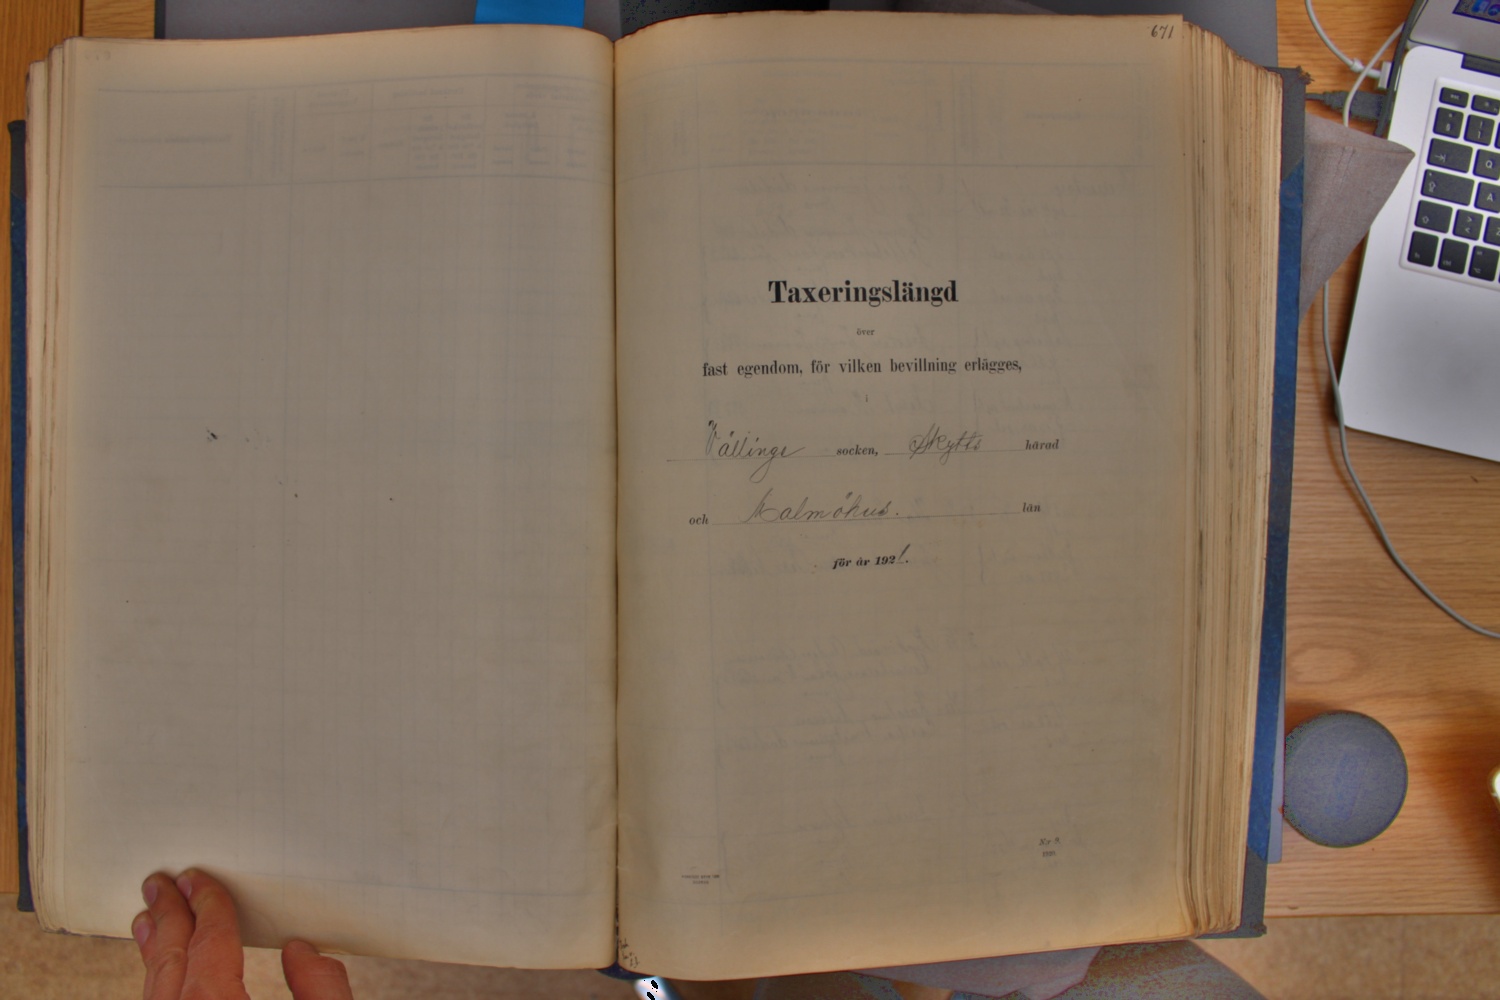 671
Taxeringslängd
över
fast egendom, för vilken bevillning erlägges,
i
Vällinge socken, Skytts härad
och Malmöhus. län
för år 1921.
N:r 9.
1920.